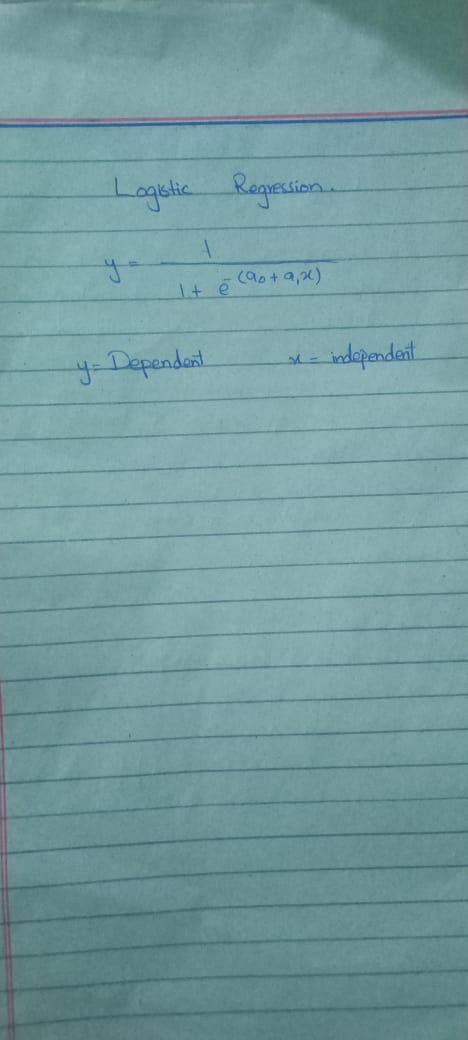 Logistic Regression.
y = 1 / 1 + e^-(a₀ + a₁x)
y = Dependent x = independent